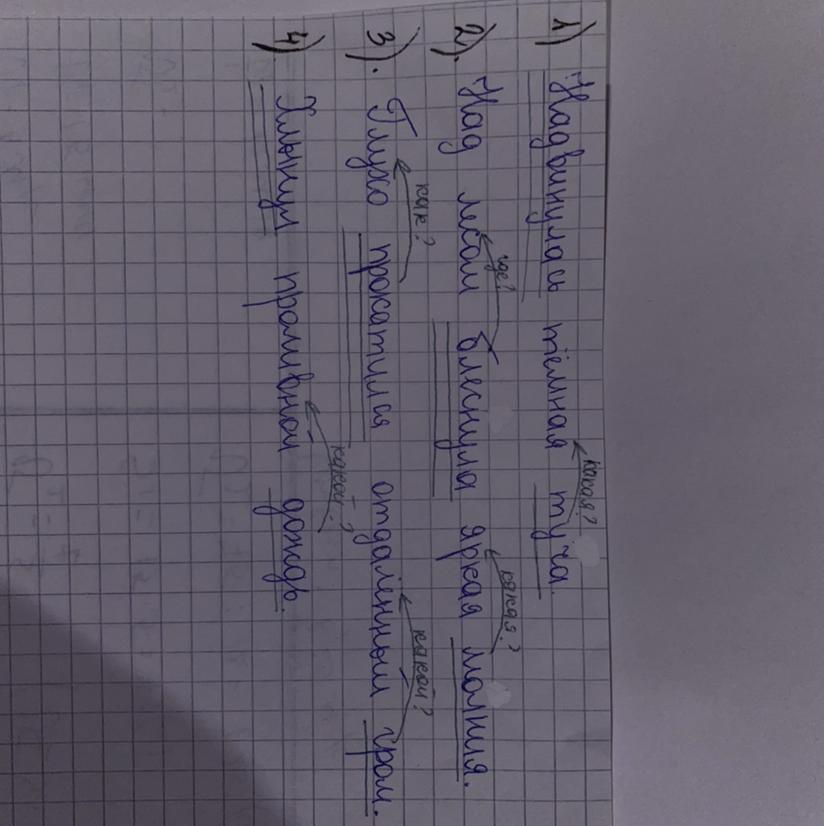 какая?
1) Надвинулась тёмная туча.
где? какая?
2). Над лесом блеснула яркая молния.
как? какой?
3). Глухо прокатился отдалённый гром.
какой?
4). Хлынул проливной дождь.